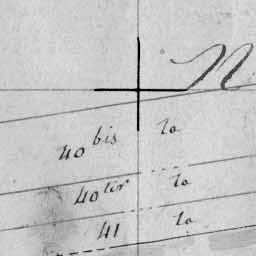 N
40 bis la
40 ter la
41 la